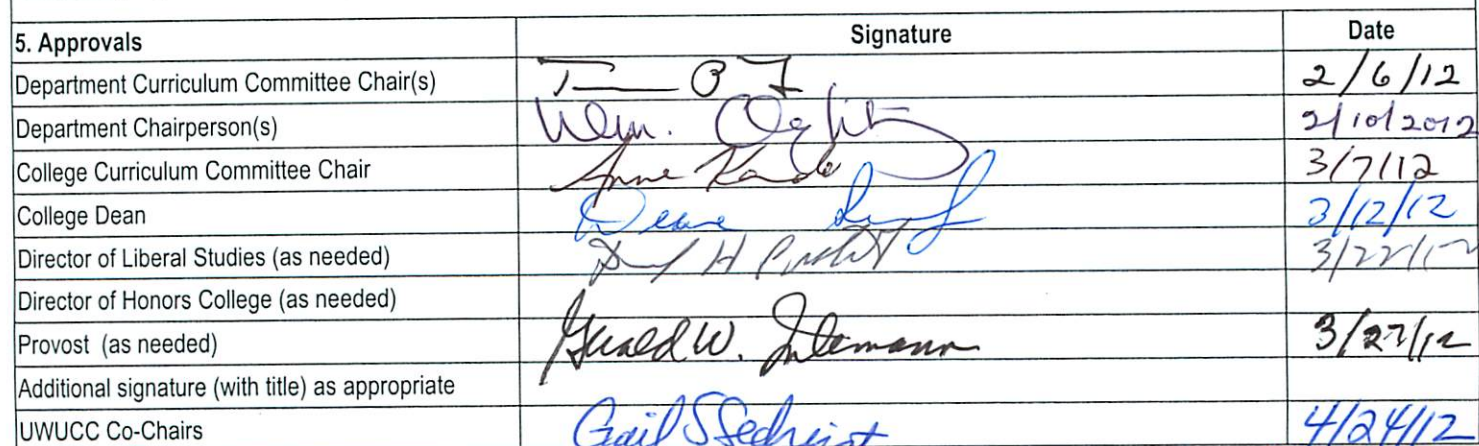 5. Approvals Signature Date
Department Curriculum Committee Chair(s) 2/6/12
Department Chairperson(s) Wm. 2/10/2012
College Curriculum Committee Chair Anne 3/7/12
College Dean Deane 3/12/12
Director of Liberal Studies (as needed) H 3/22/12
Director of Honors College (as needed)
Provost (as needed) Gerald W. Intemann 3/27/12
Additional signature (with title) as appropriate
UWUCC Co-Chairs Gail S Sechrist 4/24/12